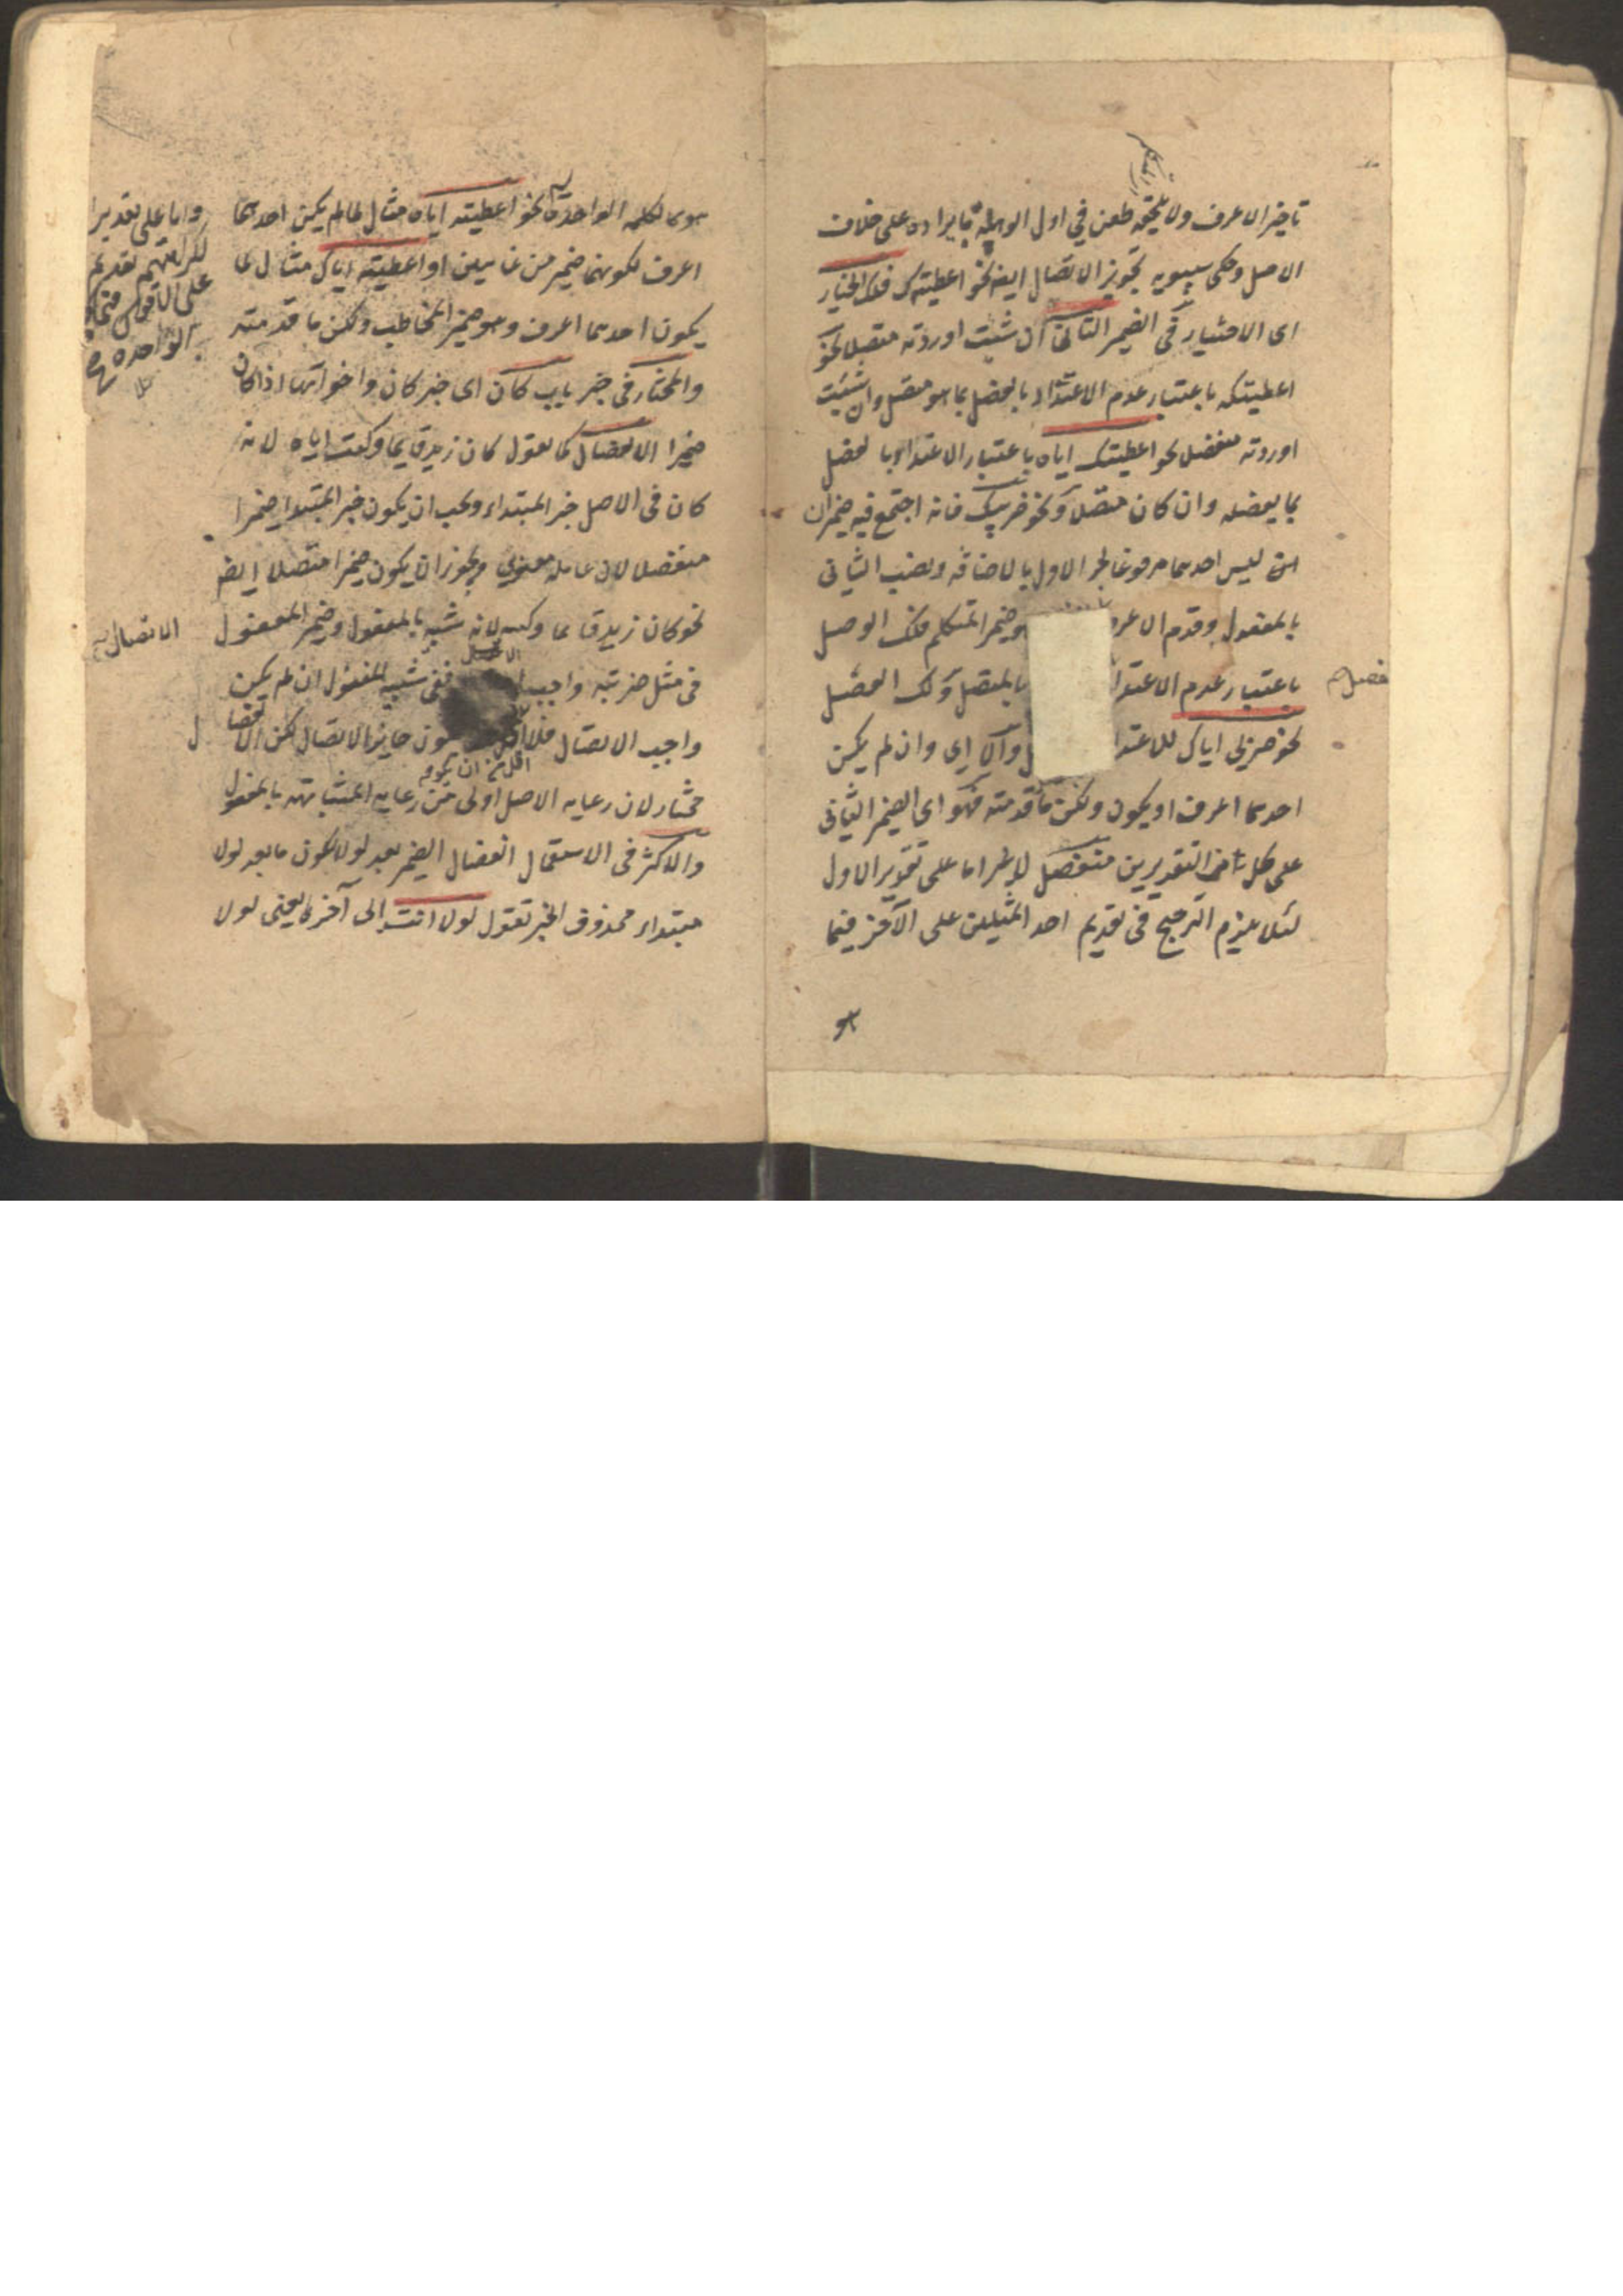 تاخير الاعرف ولا يلحقه طعن في اول الوهلة بايراده على خلاف
الاصل وحكى سيبويه تجويز الاتصال ايضا نحو اعطيتهك فلك الخيار
اى الاختيار فى الضمير الثانى ان شئت اوردته متصلا نحو
اعطيتكه باعتبار عدم الاعتداد بالفصل بما هو متصل وان شئت
اوردته منفصلا نحو اعطيتك اياه باعتبار الاعتداد بالفصل
بما يفصله وان كان متصلا ونحو ضربيك فانه اجتمع فيه ضميران
ليس احدهما مرفوعا لجر الاول بالاضافه ونصب الثانى
بالمفعول وقدم الاعر وضمير المتكلم فلك الوصل
باعتبار عدم الاعتدا بالمتصل ولك الفصل
نحو ضربى اياك للاعتدا والا اى وان لم يكن
احدهما اعرف او يكون ولكن ما قدمته فهو اى الضمير الثانى
على كل من التقديرين منفصل لا غير اما على تقدير الاول
لئلا يلزم الترجيح فى تقديم احد المثلين على الآخر فيما
هو كالكلمه الواحدة نحو اعطيته اياه مثال لما لم يكن احدهما
اعرف لكونهما ضميرين غائبين او اعطيته اياك مثال لما
يكون احدهما اعرف وهو ضمير المخاطب ولكن ما قدمته
والمختار فى خبر باب كان اى خبر كان واخواتها اذا كان
ضميرا الانفصال كما تقول كان زيد قايما وكنت اياه لانه
كان فى الاصل خبر المبتداء ويجب ان يكون خبر المبتدا ضميرا
منفصلا لان عامله معنوى ويجوز ان يكون ضميرا متصلا ايضا
نحو كان زيد قايما وكنته لانه شبيه بالمفعول وضمير المفعول
فى مثل ضربته واجب ففى شبيه المفعول ان لم يكن
واجب الاتصال فلا اقل يكون جايز الاتصال لكن الانفصال
مختار لان رعايه الاصل اولى من رعايه المشابهته بالمفعول
والاكثر فى الاستعمال انفصال الضمير بعد لولا لكون ما بعد لولا
مبتداء محذوف الخبر تقول لولا انت الى آخرها يعنى لولا
واما على تقدير
لكراهتهم تقديم
على الاقوى فيما
الواحدة
الاتصال